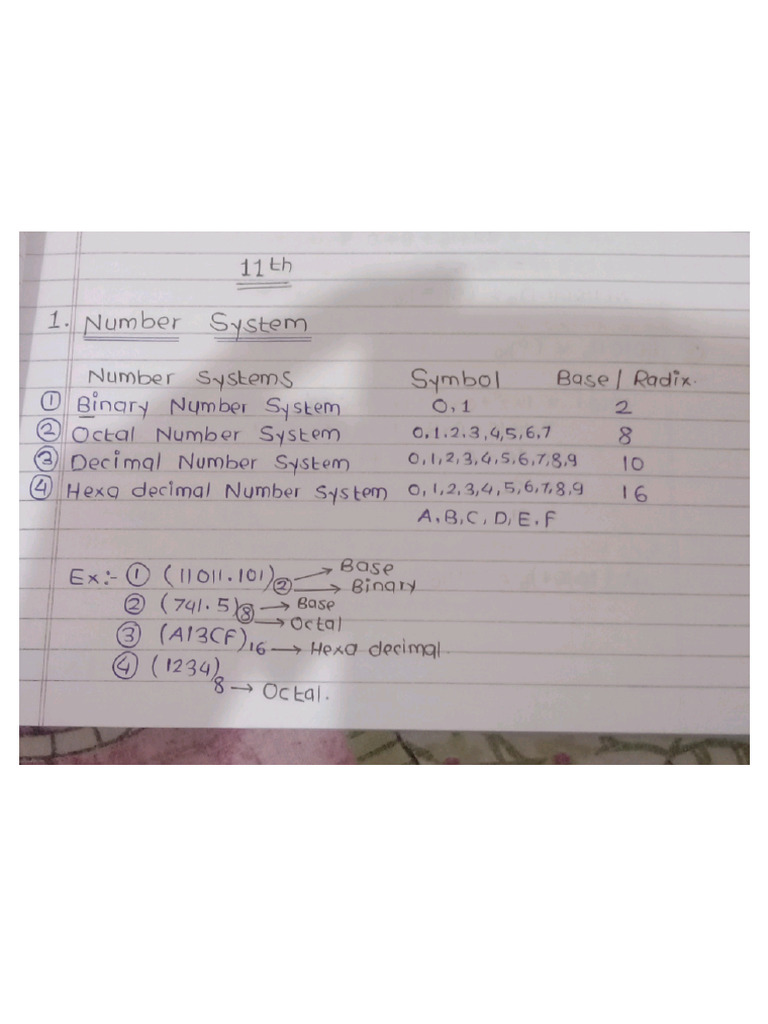 11th
1. Number System
Number Systems Symbol Base / Radix.
① Binary Number System 0,1 2
② Octal Number System 0,1,2,3,4,5,6,7 8
③ Decimal Number System 0,1,2,3,4,5,6,7,8,9 10
④ Hexa decimal Number System 0,1,2,3,4,5,6,7,8,9 16
A,B,C,D,E,F
Ex:- ① (11011.101)② → Base
→ Binary
② (741.5)⑧ → Base
→ Octal
③ (A13CF)16 → Hexa decimal.
④ (1234)8 → Octal.